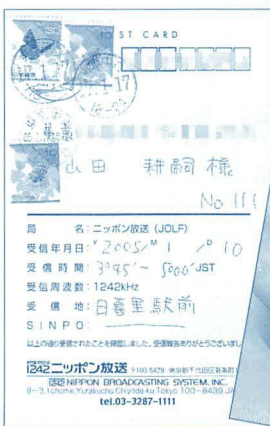 POST CARD
17
山田 耕嗣 様
No 111
局 名: ニッポン放送 (JOLF)
受信年月日: Y 2005/M 1 /D 10
受信時間: 3°45′~ 5°00′JST
受信周波数: 1242kHz
受信地: 日暮里駅前
SINPO:
以上の通り受信されたことを確認しました。受信報告ありがとうございまし
1242 ニッポン放送 〒100-8439 東京都千代田区有楽町
NIPPON BROADCASTING SYSTEM, INC.
1chome, Yurakucho, Chiyoda-ku Tokyo 100-8439 JA
tel.03-3287-1111